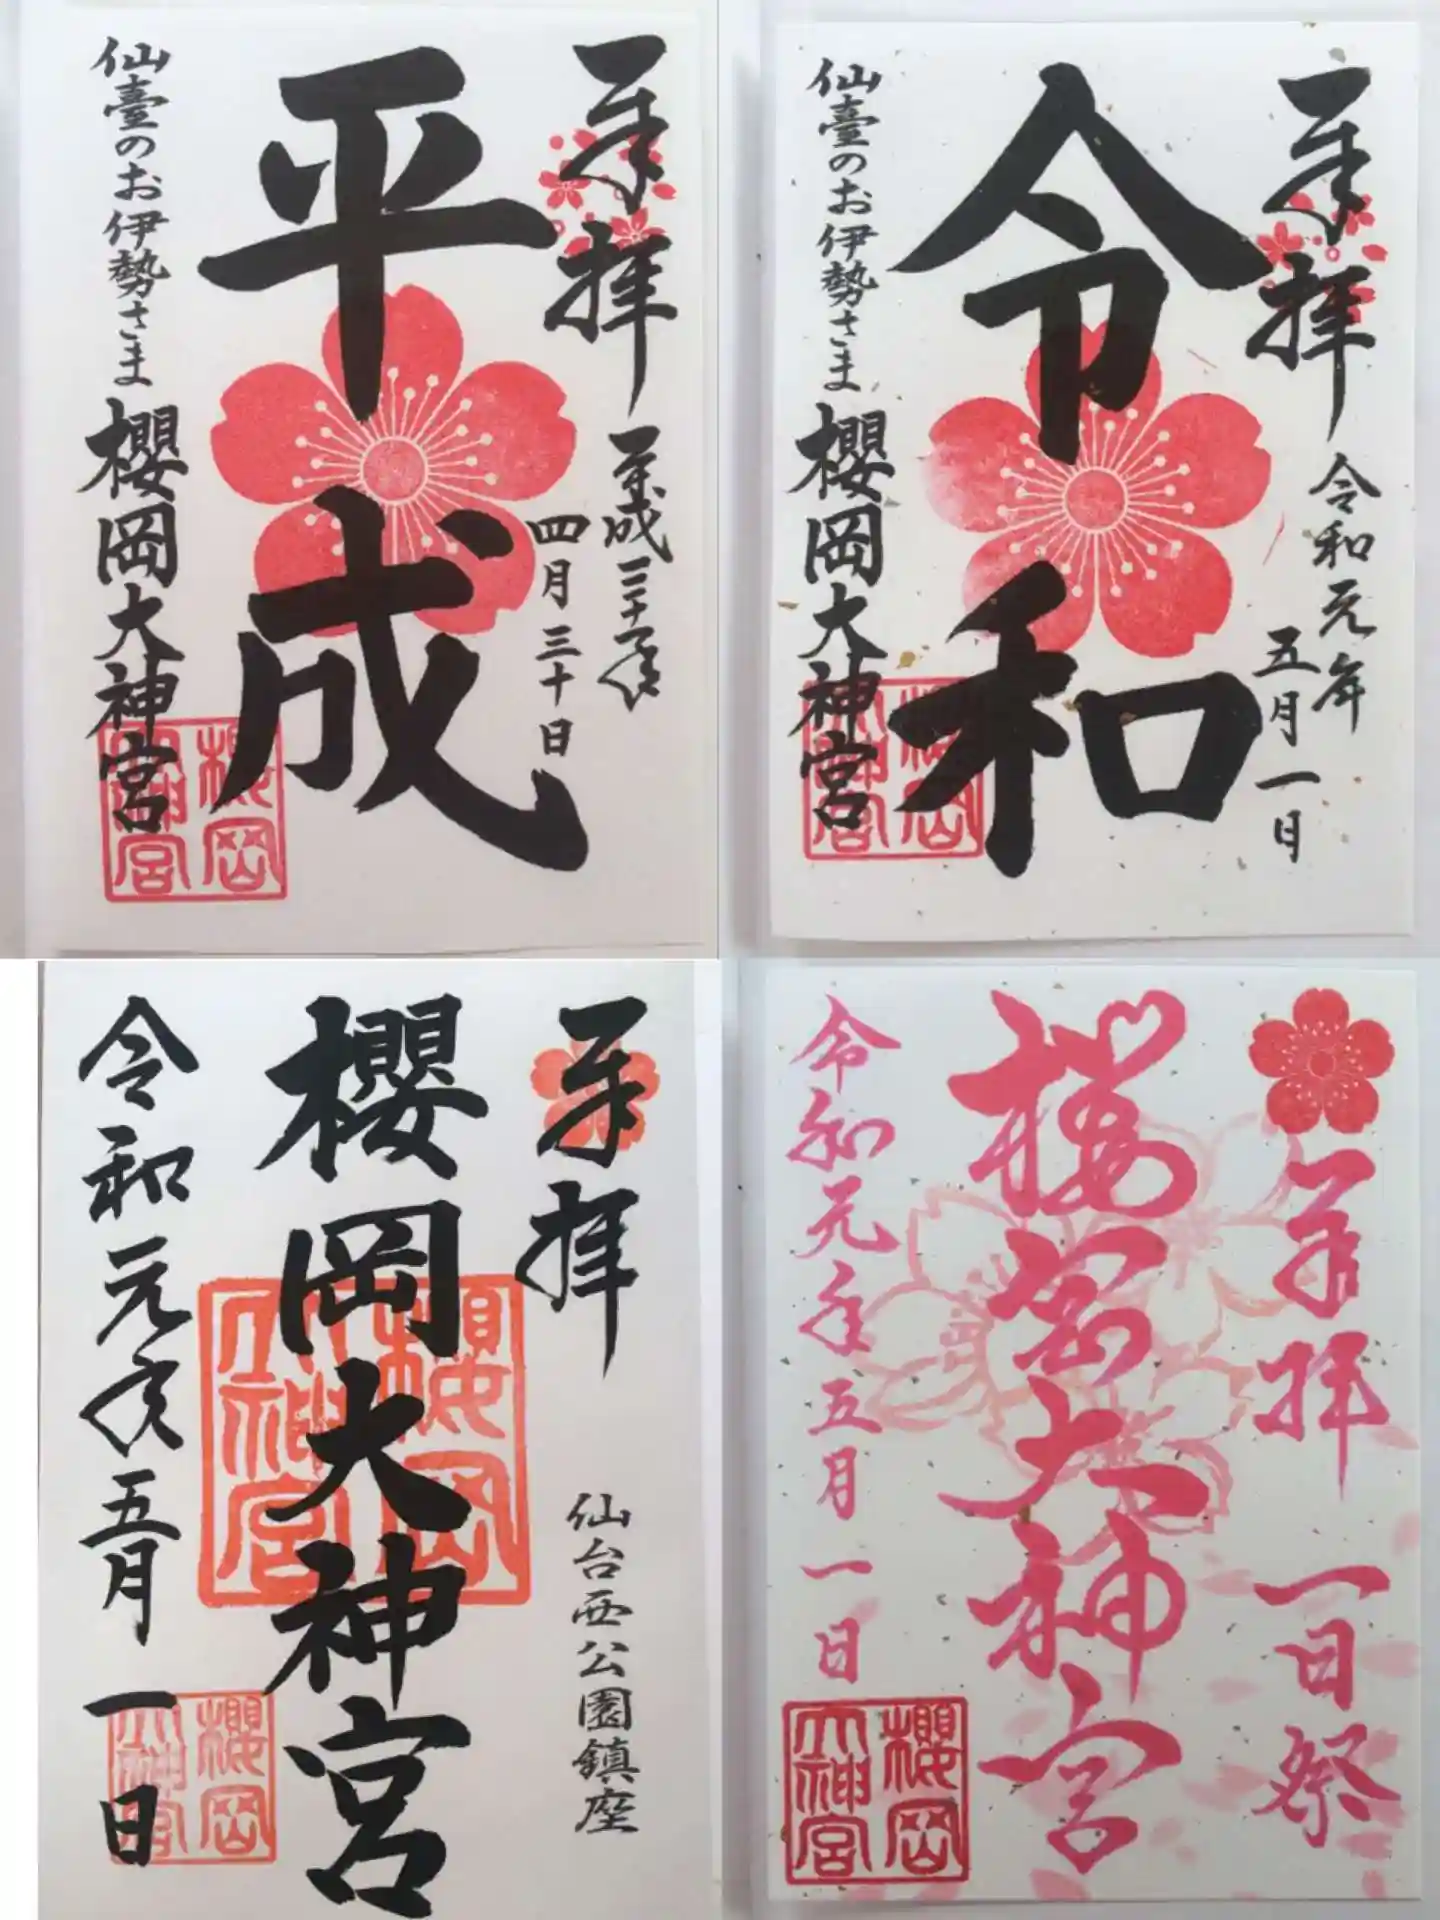 奉拝
平成三十一年
四月三十日
平成
仙臺のお伊勢さま
櫻岡大神宮
櫻岡大神宮
奉拝
令和元年
五月一日
令和
仙臺のお伊勢さま
櫻岡大神宮
櫻岡大神宮
奉拝
仙台西公園鎮座
櫻岡大神宮
櫻岡大神宮
令和元年五月一日
櫻岡大神宮
奉拝 一日祭
櫻岡大神宮
令和元年五月一日
櫻岡大神宮